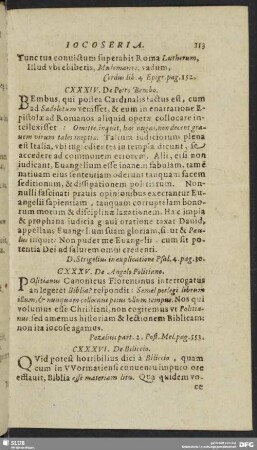 IOCOSERIA. 213
Tunc tus conuictum superabit Roma Lutherum,
Illud vbi ebiberis, Muhemantis, vadum,
Cordus lib. 4. Epigr. pag. 152.
CXXXIV. De Petro Bembo.
BEmbus, qui postea Cardinalis factus est, cum
ad Sadoletum venisset, & eum in enarratione E-
pistolæ ad Romanos aliquid operæ collocare in-
tellexisset: Omitte, inquit, has nugas, non decent gra-
uem virum tales ineptiæ. Talium iudiciorum plena
est Italia, vbi ingredientes in templa dicunt, se
accedere ad communem errorem. Alij, etsi non
iudicant, Euangelium esse inanem fabulam, tamẽ
ut nimium audax oderunt tanquam sacem
seditionum, & dissipationem politiarum. Non-
nulli fascinati prauis opinionibus execrantur Eu-
angelij sapientiam, tanquam corruptelam bono-
rum morum & disciplinæ laxationem. Hæc impia
& prophana iudicia graui oratione taxat Dauid,
appellans Euangelium suam gloriam, si ut & Pau-
lus inquit: Non pudet me Euangelij. cum sit po-
tentia Dei ad salutem omni credenti.
D. Strigelius in explicatione Psal. 4. pag. 30.
CXXXV. De Angelo Politiano.
POlitianus Canonicus Florentinus interrogatus
an legeret Biblia? respondit: Semel perlegi librum
illum, & nunquam collocaui peius vllum tempus. Nos qui
volumus esse Christiani, non cogitemus vt Politia-
nus, sed amemus historiam & lectionem Biblicam
non ita iocose agamus.
Pezelius part. 2. Post. Mel. pag. 553.
CXXXVI. De Bilicio.
QVid potest horribilius dici à Bilicio, quam
cum in VVormatiensi conuentu impuro ore
effauit, Biblia esse materiam litu. Qua quidem vo-
ce